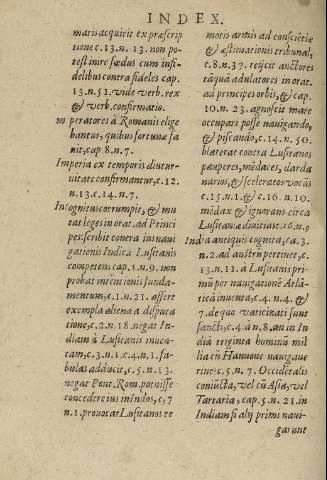 INDEX.
maris acquirit ex præscrip
tione c.13.n. 13. non po-
test inire fœdus cum infi-
delibus contra fideles cap.
13.n.51. vide verb. rex
& verb. confirmatio.
m peratores à Romanis elige
bantur, quibus fortunæ fa
uit, cap 8.n.7.
Imperia ex temporis diutur-
nitate confirmantur, c.12.
n.13.c.14.n.7.
Incognitus corrumpit, & mu
tat leges in orat. ad Princi
pes: scribit contra ius naui
gationis Indicæ Lusitanis
competens cap.1.n.9. non
probat intentionis funda-
mentum, c.1.n.21. assert
exempla aliena à disputa
tione, c.2.n.18. negat In-
diam à Lusitanis inuen-
tam, c.3.n.1.c.4.n.1. fa-
bulas adducit, c.5.n.13.
negat Pont. Rom. potuisse
concedere ius in Indos, c,7
n.1. prouocat Lusitanos re
moris armis ad conscientiæ
& æstimationis tribunal,
c.8.n.37. reijcit auctores
tãquã adulatores in orat.
ad principes orbis, & cap.
10.n. 23. agnoscit mare
occupari posse nauigando,
& piscando, c.14.n.50.
blaterat contra Lusitanos
pauperes, mẽdaces,
narios, & sceleratos vocãs
c.15.n.1.& c.16.n.10.
mẽdax & ignarus circa
Lusitanæ diuitias c.16.n.
India antiquis cognita, c.3.
n.2. ad austrũ pertinet, c.
13.n.11. à Lusitanis pri-
mũ per nauigationẽ Atlã-
ticã inuenta, c.4.n.4. &
7. de quo vaticinati sunt
sancti, c.4.n.8. an in In
dia triginta hominũ mil
lia cũ Hannone nauigaue
rint c.5.n. 7. Occidẽtalis
coniũcta, vel cũ Asia, vel
Tartaria, cap.5.n.21. in
Indiam si alij primi naui-
garunt